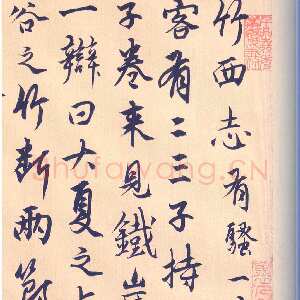 竹西志有騷一
客有二三子持
子卷来見鐵
一辯曰大夏之
谷之竹斷兩節
Shufawang.CN